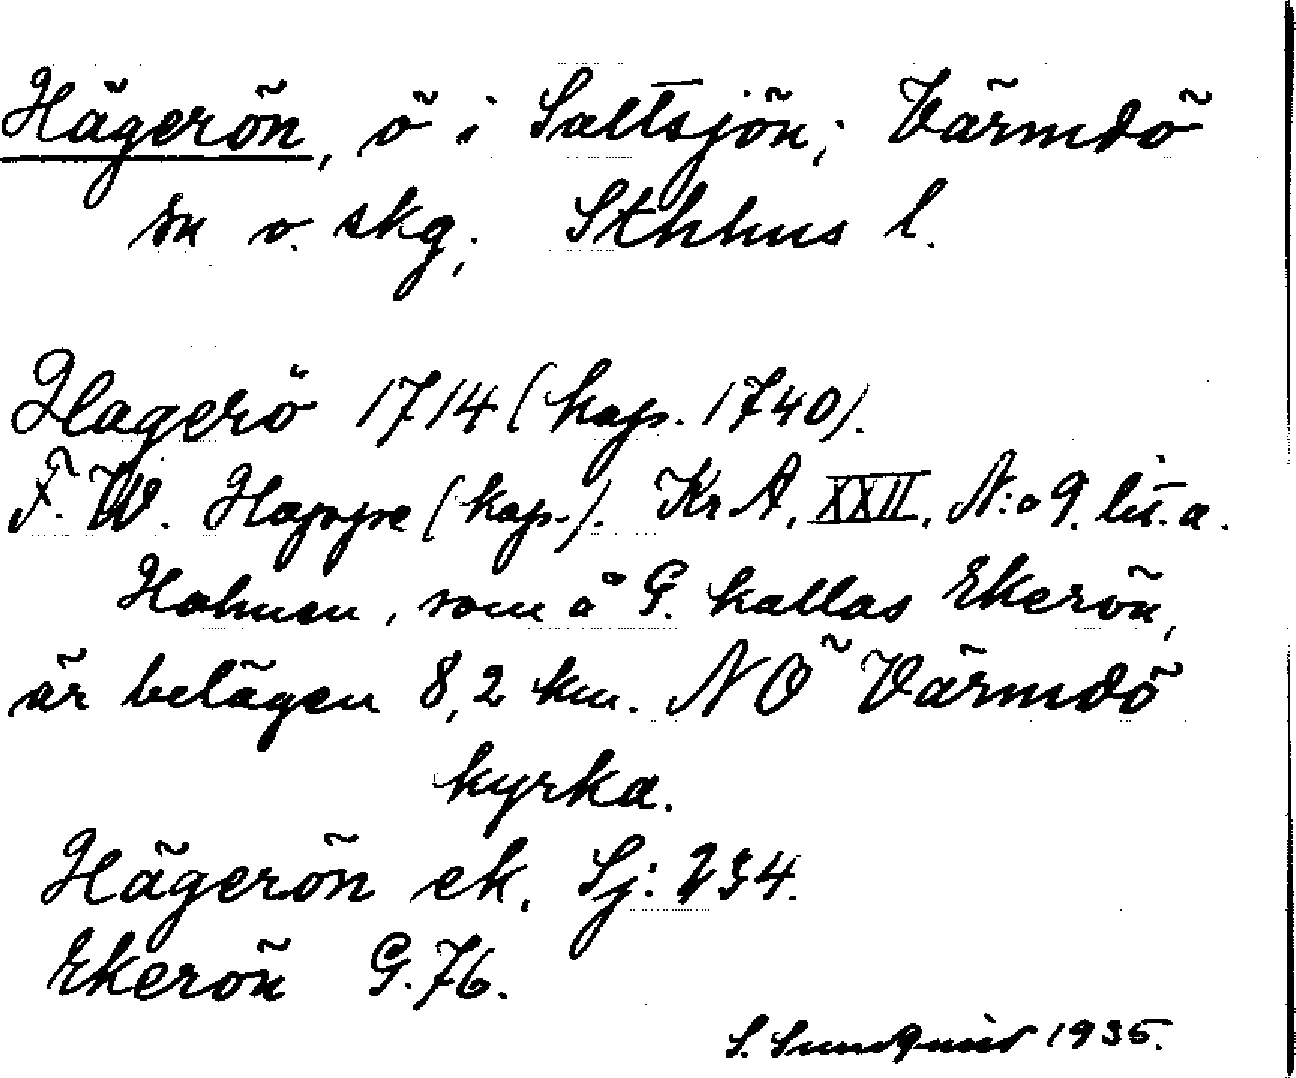 Hägerön, ö i Saltsjön; Värmdö
sn o. skg, Sthhus l.
Hagerö 1714 (kop. 1740).
F. W. Happe (kop.). KrA. XXII. N:o 9. lit. a.
Holmen, som å G. kallas Ekerön,
är belägen 8,2 km. NÖ Värmdö
kyrka.
Hägerön ek. Sj: 234.
Ekerön G. 76.
S. Sundqvist 1935.